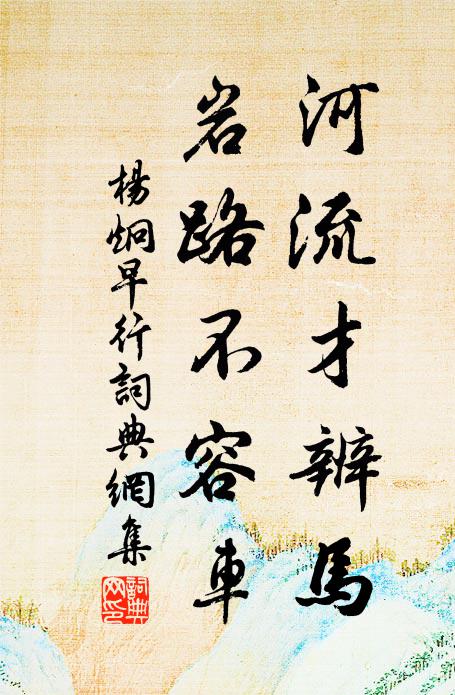 河流才辨馬
岩路不容車
楊炯早行詞典網集
詞典網印